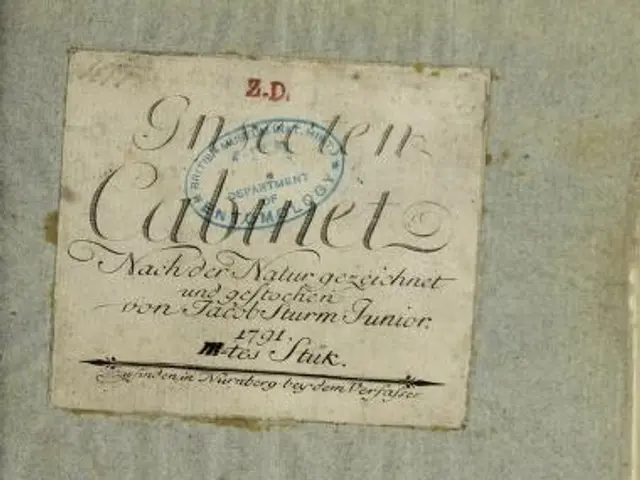 Z.D.
Insecten
Cabinet
BRITISH MUSEUM (NAT. HIST.)
DEPARTMENT
OF
ENTOMOLOGY
Nach der Natur gezeichnet
und gestochen
von Jacob Sturm Junior.
1791.
III-tes Stük.
Zu finden in Nürnberg bey dem Verfasser